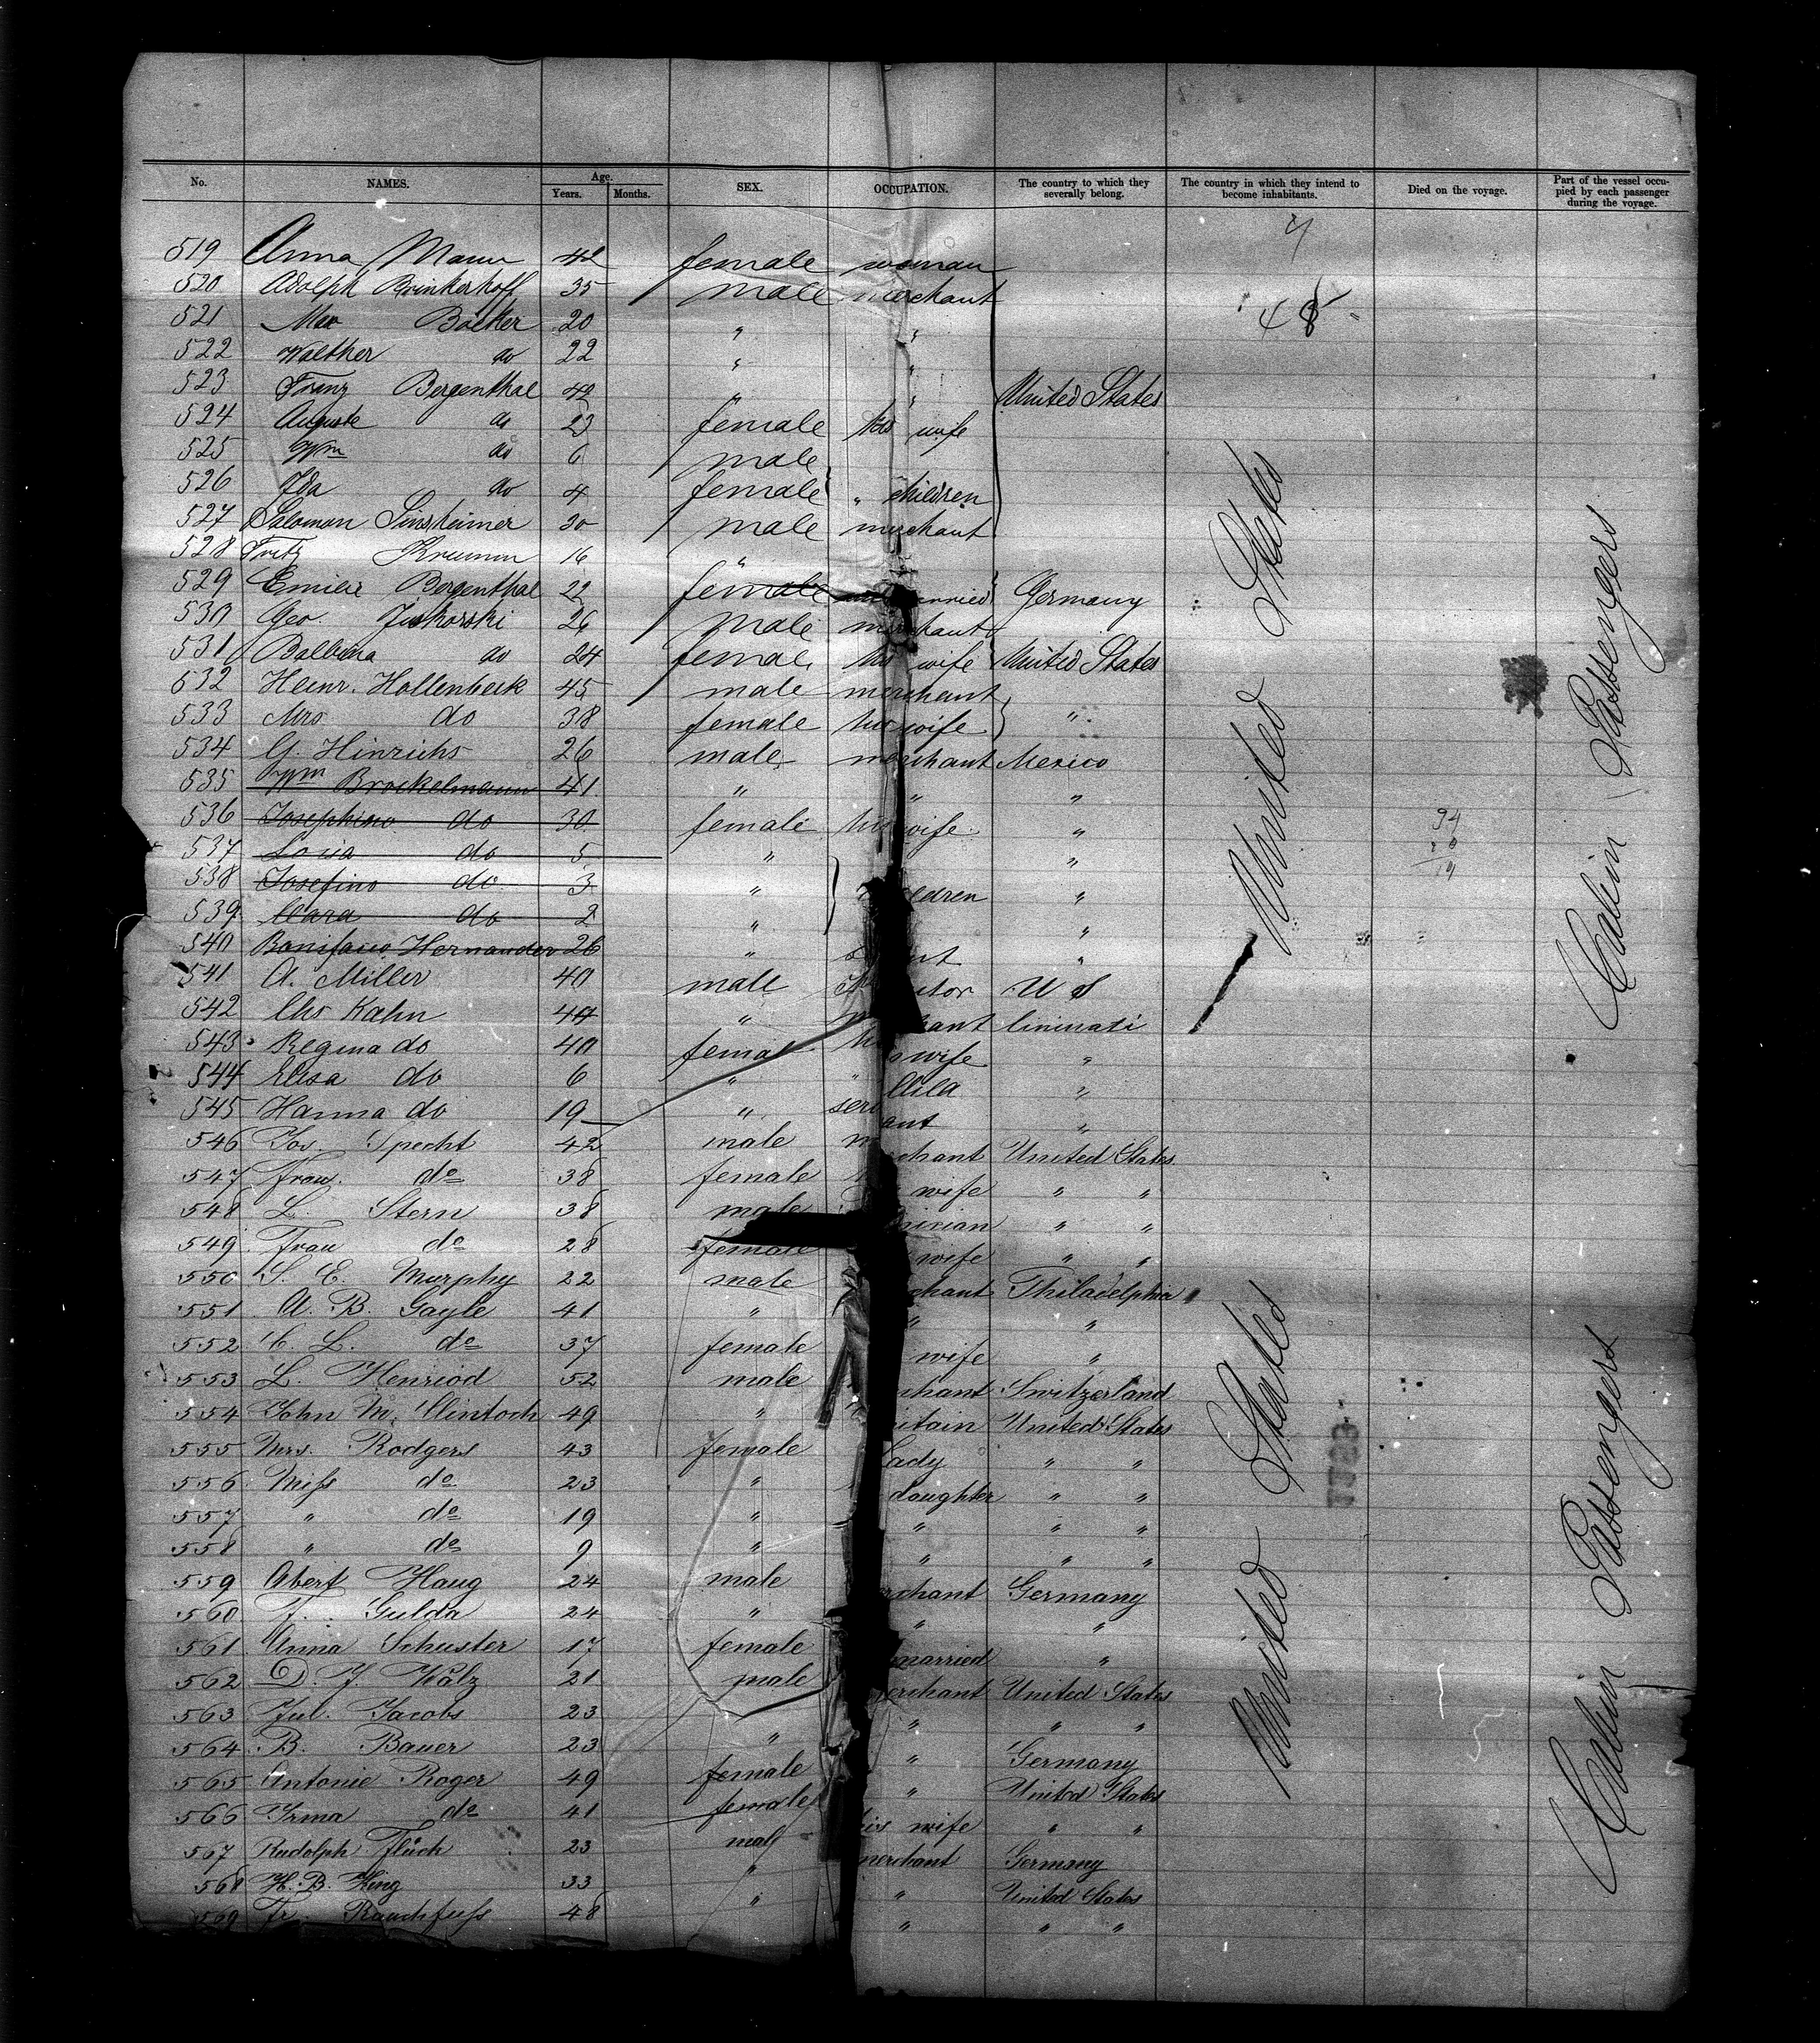 No. NAMES. Age. Years. Months. SEX. OCCUPATION. The country to which they severally belong. The country in which they intend to become inhabitants. Died on the voyage. Part of the vessel occupied by each passenger during the voyage.
519 Anna Mann 42 female woman
520 Adolph Brinkerhoff 35 male merchant
521 Max Backer 20 " "
522 Walther do 22 " "
523 Franz Bergenthal 42 " " United States
524 Auguste do 23 female his wife
525 Wm do 6 male
526 Ida do 4 female " children
527 Salomon Sinsheimer 30 male merchant
528 Fritz Krumm 16 "
529 Emilie Bergenthal 22 female unmarried Germany
530 Geo. Jiskorski 26 male merchant
531 Balbina do 24 female his wife United States
532 Heinr. Hollenbeck 45 male merchant
533 Mrs do 38 female his wife "
534 G. Hinrichs 26 male merchant Mexico
535 Wm Brockelmann 41 " " "
536 Josephine do 30 female his wife "
537 do 5 " "
538 Josefina do 3 " children "
539 Clara do 2 " "
540 Bonifacio Hernander 26 " "
541 A. Miller 40 male U S
542 Chs Kahn 44 " merchant Cininati
543 Regina do 40 female his wife "
544 Elisa do 6 " " Child "
545 Hanna do 19 " servant "
546 Jos. Specht 42 male merchant United States
547 Frau do 38 female wife " "
548 L. Stern 38 male " "
549 Frau do 28 female wife " "
550 S. E. Murphy 22 male merchant Philadelphia
551 A. B. Gayle 41 " " "
552 C. L. do 37 female wife "
553 L. Henriod 52 male merchant Switzerland
554 John Mc Clintoch 49 " United States
555 Mrs. Rodgers 43 female Lady " "
556 Miss do 23 " daughter " "
557 " do 19 " " " "
558 " do 9 " " " "
559 Abert Haug 24 male merchant Germany
560 F. Gulda 24 " " "
561 Anna Schuster 17 female married "
562 D. J. Walz 21 male merchant United States
563 Jul. Jacobs 23 " " "
564 B. Bauer 23 " " Germany
565 Antonie Roger 49 female " United States
566 Irma do 41 female his wife " "
567 Rudolph Flüch 23 male merchant Germany
568 H. B. King 33 " " United States
569 Fr. Rauchfuss 48 " " " "
United States
United States
Cabin Passengers
Cabin Passengers